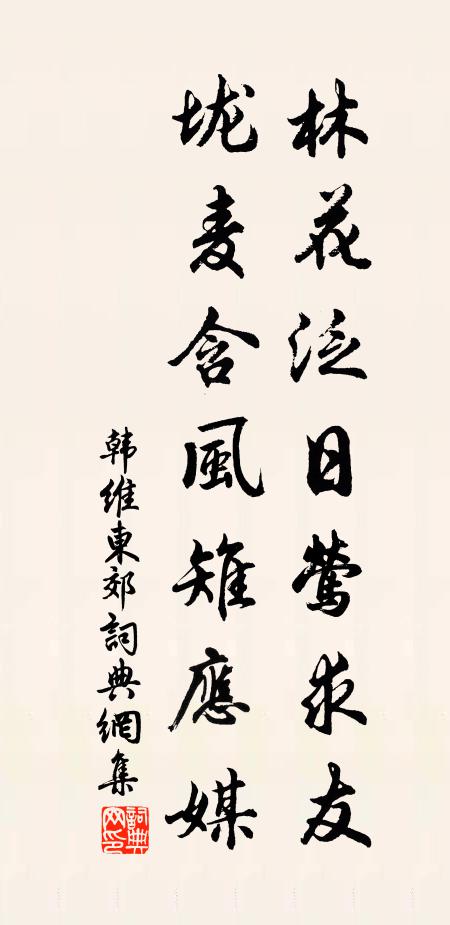 林花泛日莺求友
垅麦含風雉應媒
韩维東郊詞典網集
詞典网印